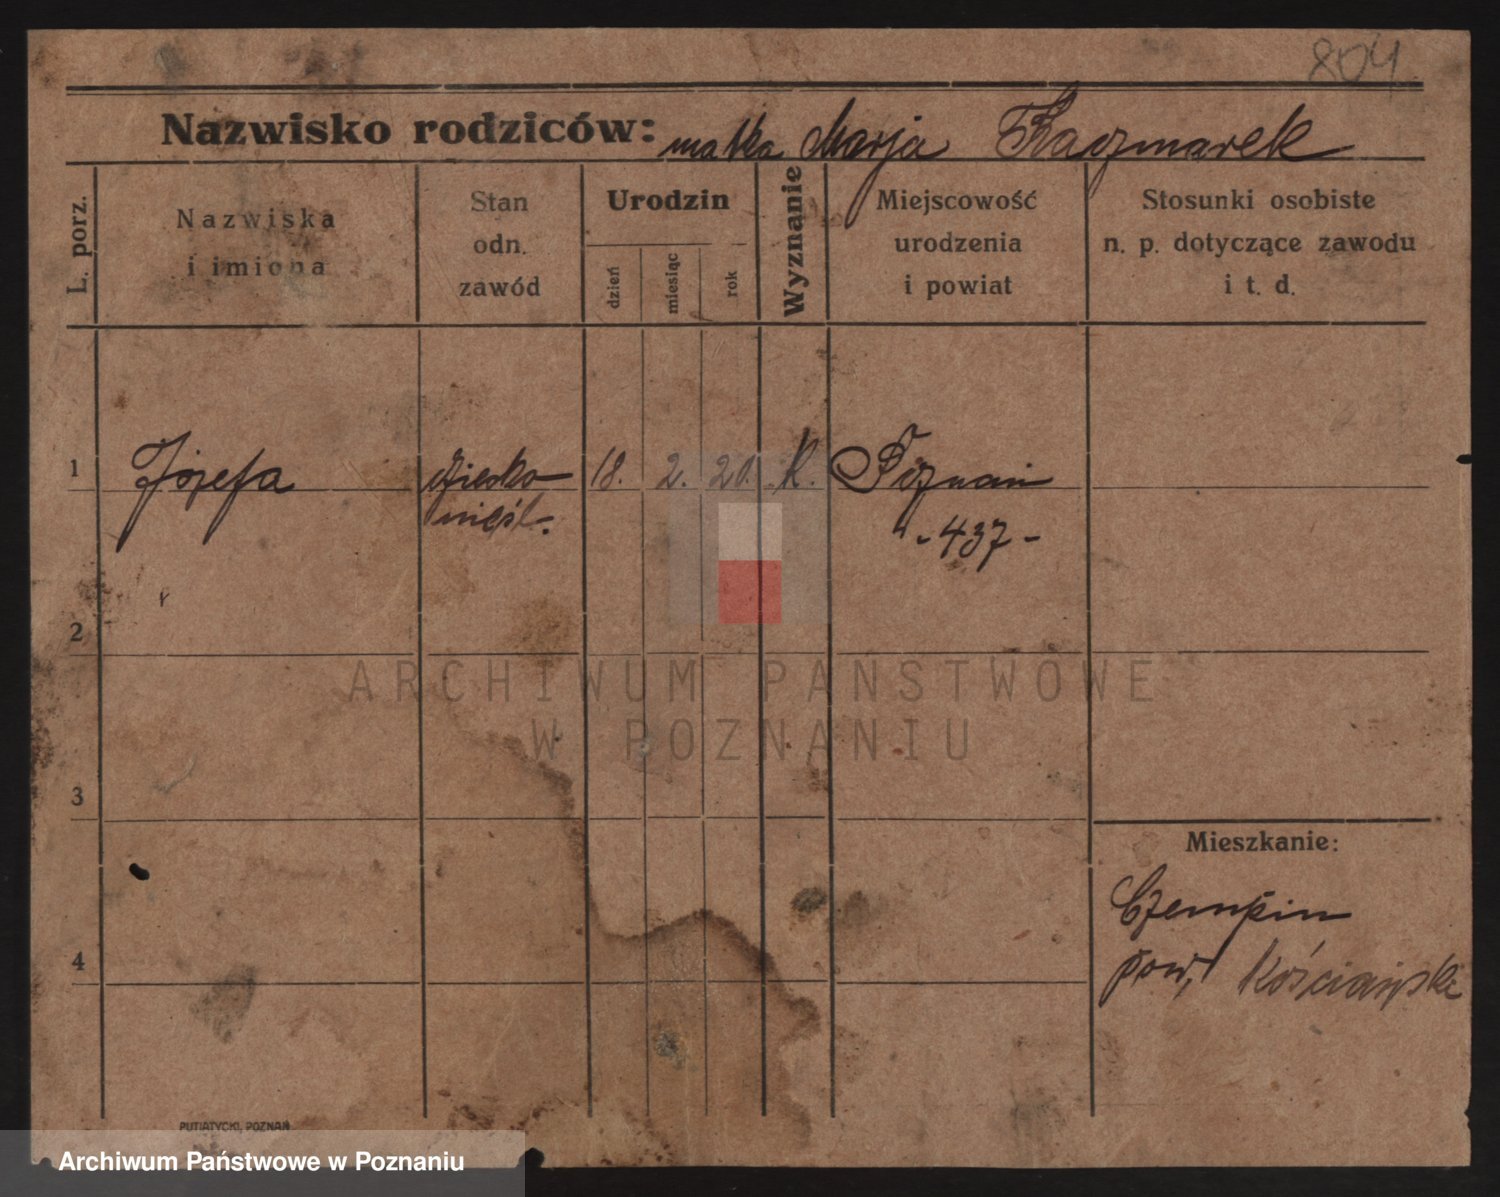 804
Nazwisko rodziców: matka Marja Kaczmarek
L. porz.
Nazwiska
i imiona
Stan
odn.
zawód
Urodzin
dzień
miesiąc
rok
Wyznanie
Miejscowość
urodzenia
i powiat
Stosunki osobiste
n. p. dotyczące zawodu
i t. d.
1 Józefa dziecko 18. 2. 20. K. Poznań
nieśl. - 437 -
2
ARCHIWUM PAŃSTWOWE
W POZNANIU
3
Mieszkanie:
Czempiń
pow. Kościański
4
PUTIATYCKI, POZNAŃ
Archiwum Państwowe w Poznaniu